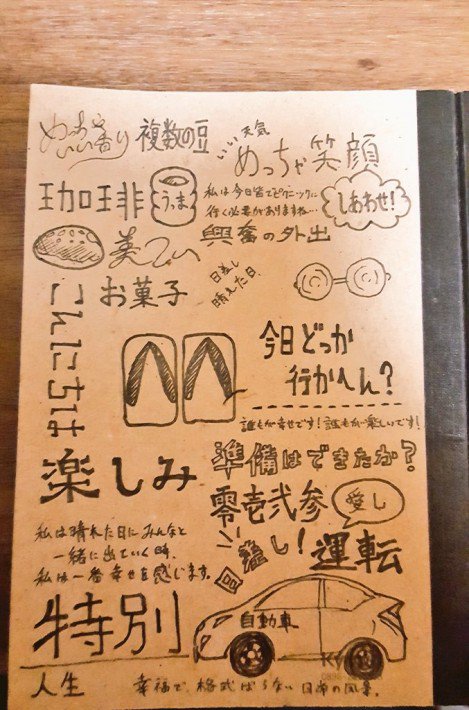 めっちゃいい香り
複数の豆
いい天気
めっちゃ笑顔
珈琲
うま
私は今日皆でピクニックに
行く必要がありますね…
しあわせ!
美しい
興奮の外出
お菓子
日差し
晴れた日
こんにちは
今日どっか
行かへん?
誰もが幸せです!誰もが楽しいです!
楽しみ
準備はできたか?
零壱弐参
愛し
私は晴れた日にみんなと
一緒に出ていく時、
私は一番幸せを感じます。
癒し!
運転
特別
自動車
人生
幸福で、格式ばらない日常の風景。